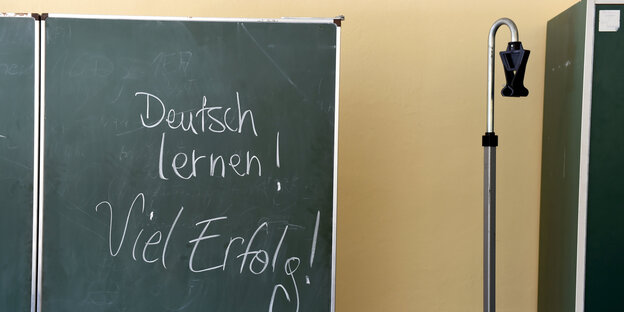 Deutsch
lernen!
Viel Erfolg!